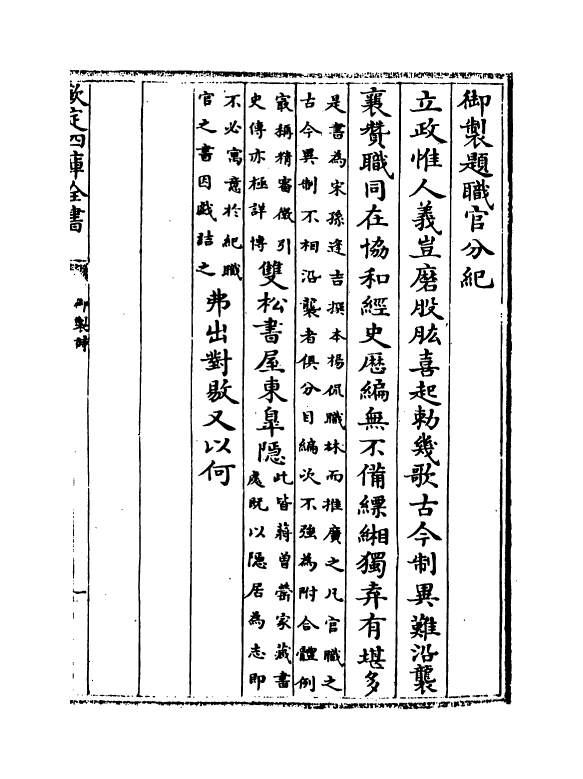 御製題職官分紀
立政惟人義豈磨股肱喜起勅幾歌古今制異難沿襲
襄賛職同在協和經史歴編無不備縹緗獨弆有堪多
是書為宋孫逢吉撰本楊侃職林而推廣之凡官職之
古今異制不相沿襲者俱分目編次不強為附合體例
㝡稱精審徵引
史傳亦極詳博
雙松書屋東臯隱
此皆蔣曾瑩家藏書
處既以隱居為志即
不必寓意於紀職
官之書因戲詰之
弗出對敭又以何
欽定四庫全書
御製詩
一